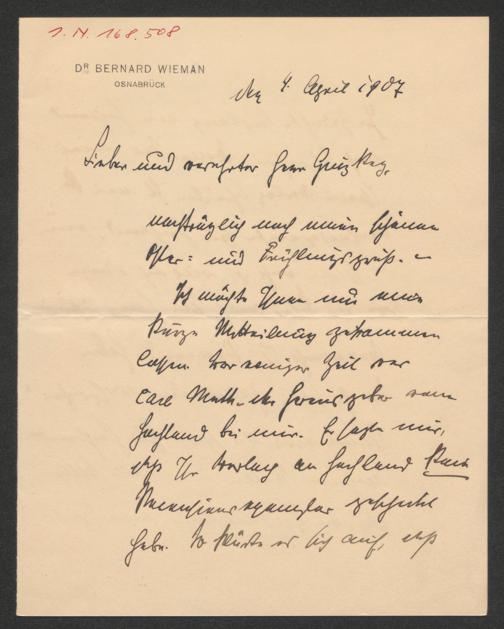 I. N. 168.508
DR BERNARD WIEMAN
OSNABRÜCK
den 4. April 1907
Lieber und verehrter Herr Ginzkey,
nachträglich noch meinen schönen
Oster- und Frühlingsgruß. –
Ich möchte Ihnen nur eine
kurze Mitteilung zukommen
lassen. Vor weniger Zeit war
Carl Muth, der Herausgeber vom
Hochland bei mir. Er sagte mir,
daß Ihr Verlag an Hochland kein
Recensionsexemplar geschickt
habe. So klärte es sich auf, daß